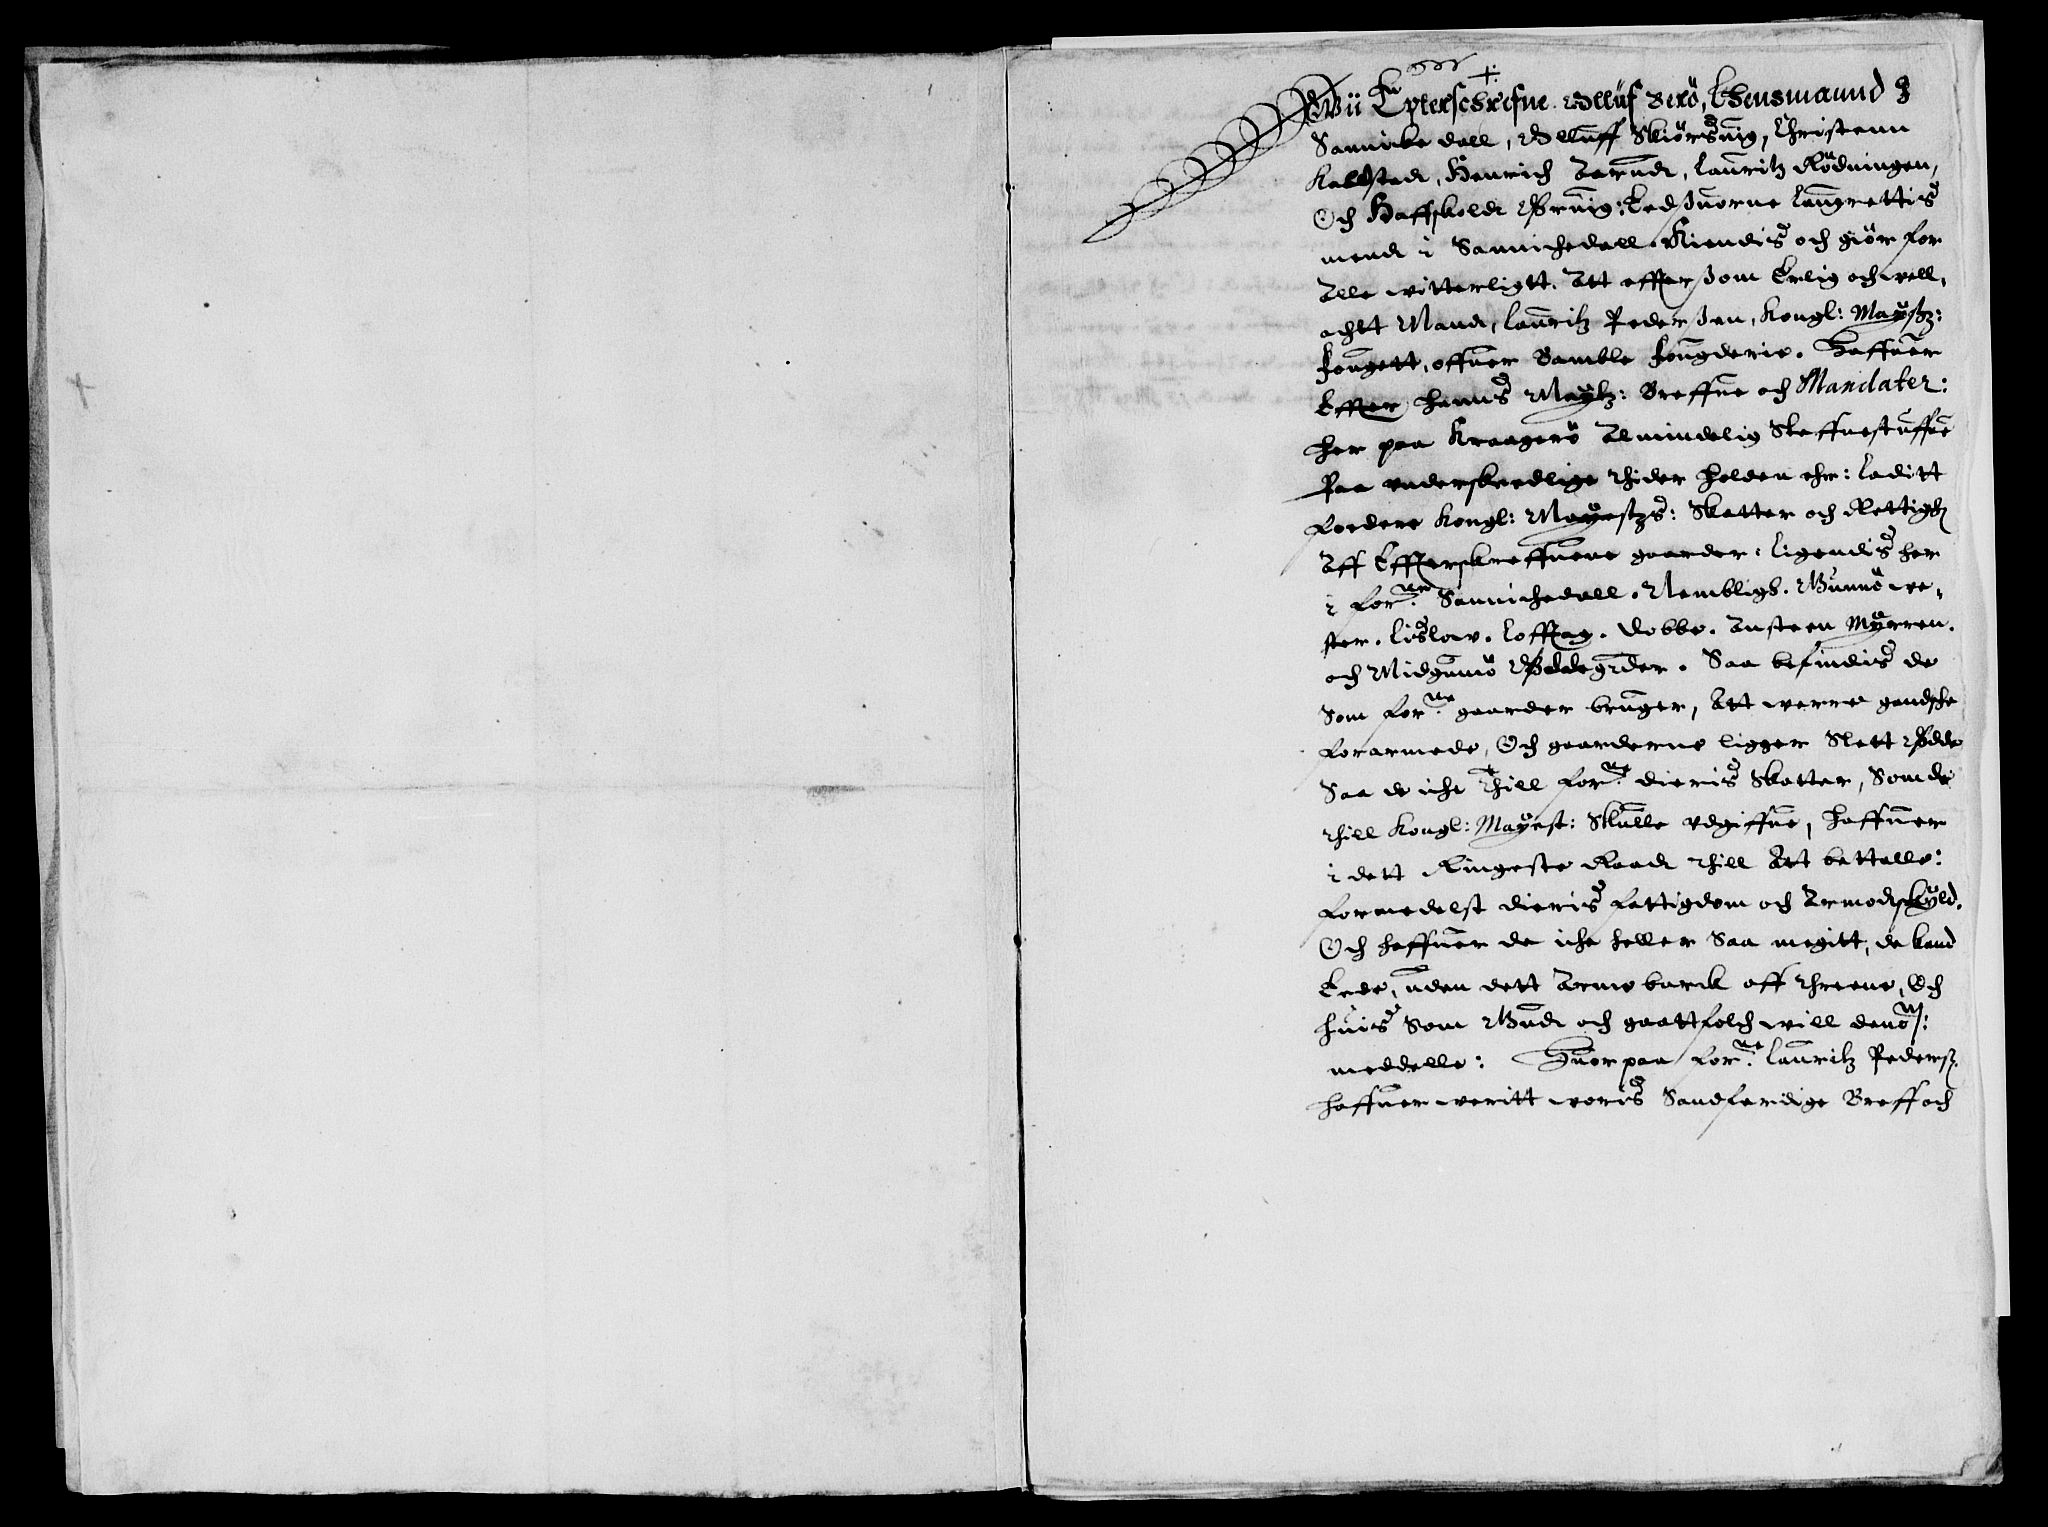 Wii Epterschrefne Olluf Berö, Lhensmannd i
Sannickedall, Olluff Skiörsnig, Christenn
Kallstadt, Henrich Barndt, Lauritz Rödningen,
Och Haffskoldt Ørnig: Edsuorne Laugrettis
mend i Sannichedall. Kiendis och giör for
Alle witterligtt. Att effter som Erlig och well,
achtt Mand, Lauritz Pedersen, Kongl: Maystz:
Fougett, offuer Bamble fougderie. Haffuer
Effter hanns Maytz: Breffue och Mandater:
her paa Kraagerö Almindelig Steffnestuffne
Paa underskeedlige thider holden ehr: Laditt
fordere Kongl: Mayestzs: Skatter och Rettigh
Aff Effterskreffuene gaarder: ligendis her
i for.ne Sannichedall. Nembligh. Gunnö we,
ster. Lislow. Lofftag. Dobbe. Austeen Myrren.
och Midgunnö Ødegrder. Saa befindis de
Som for.ne gaarder bruger, Att werre gandske
forarmede, Och gaarderne ligger Slett Øde
Saa de iche thill for.ne dieris Skatter, Som de
thill Kongl: Mayest: Skulle udgiffue, haffuer
i dett Ringeste Raad thill Att bettalle:
formedelst dieris fattigdom och Armodtskyld.
Och haffuer de iche heller Saa megitt, de kand
Eede, uden dett Arme barck aff threene, Och
huis Som Gud och gaattfolch will dennom:
meddelle: Huor paa for.ne Lauritz Peders.
haffuer weritt woris Sandferdige Breff och